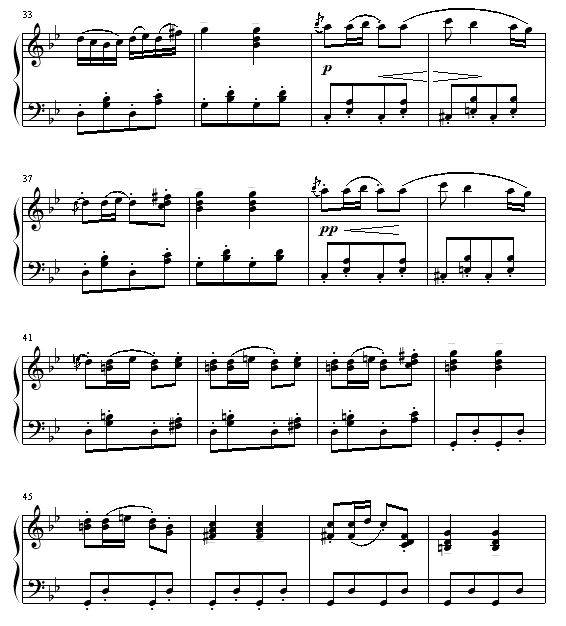 33
p
37
pp
41
45